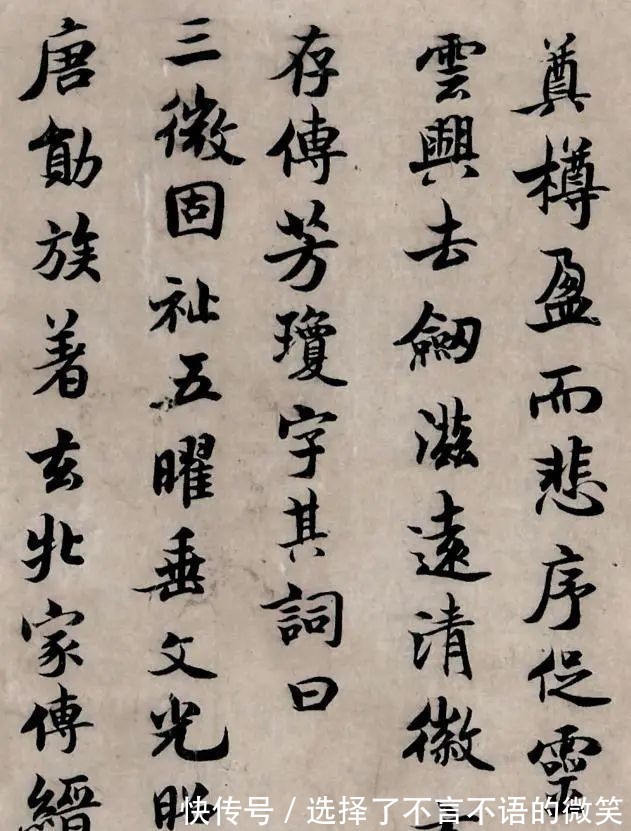 奠樽盈而悲序促靈
雲興去劔滋遠清徽
存傳芳瓊字其詞曰
三微固祉五曜垂文光
唐勛族著玄牝家傳縉
快传号 / 选择了不言不语的微笑